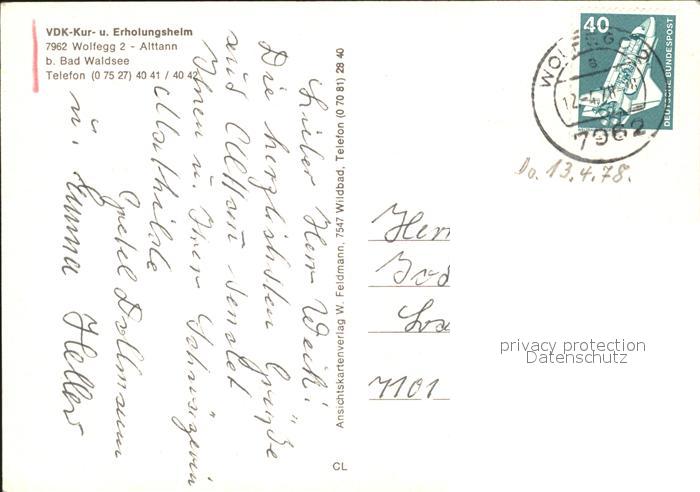 VDK-Kur- u. Erholungsheim
7962 Wolfegg 2 - Alttann
b. Bad Waldsee
Telefon (0 75 27) 40 41 / 40 42
Lieber Herr Weik!
Die herzlichsten Grüße
aus Alttann sendet
Ihnen u. Ihrer Schwägerin
Mathilde
Gretel Dollmann
u. Emma Heller
Ansichtskartenverlag W. Feldmann, 7547 Wildbad, Telefon (0 70 81) 28 40
CL
40
DEUTSCHE BUNDESPOST
WOLFEGG
7962
Do. 13.4.78.
Herr
7101
privacy protection
Datenschutz